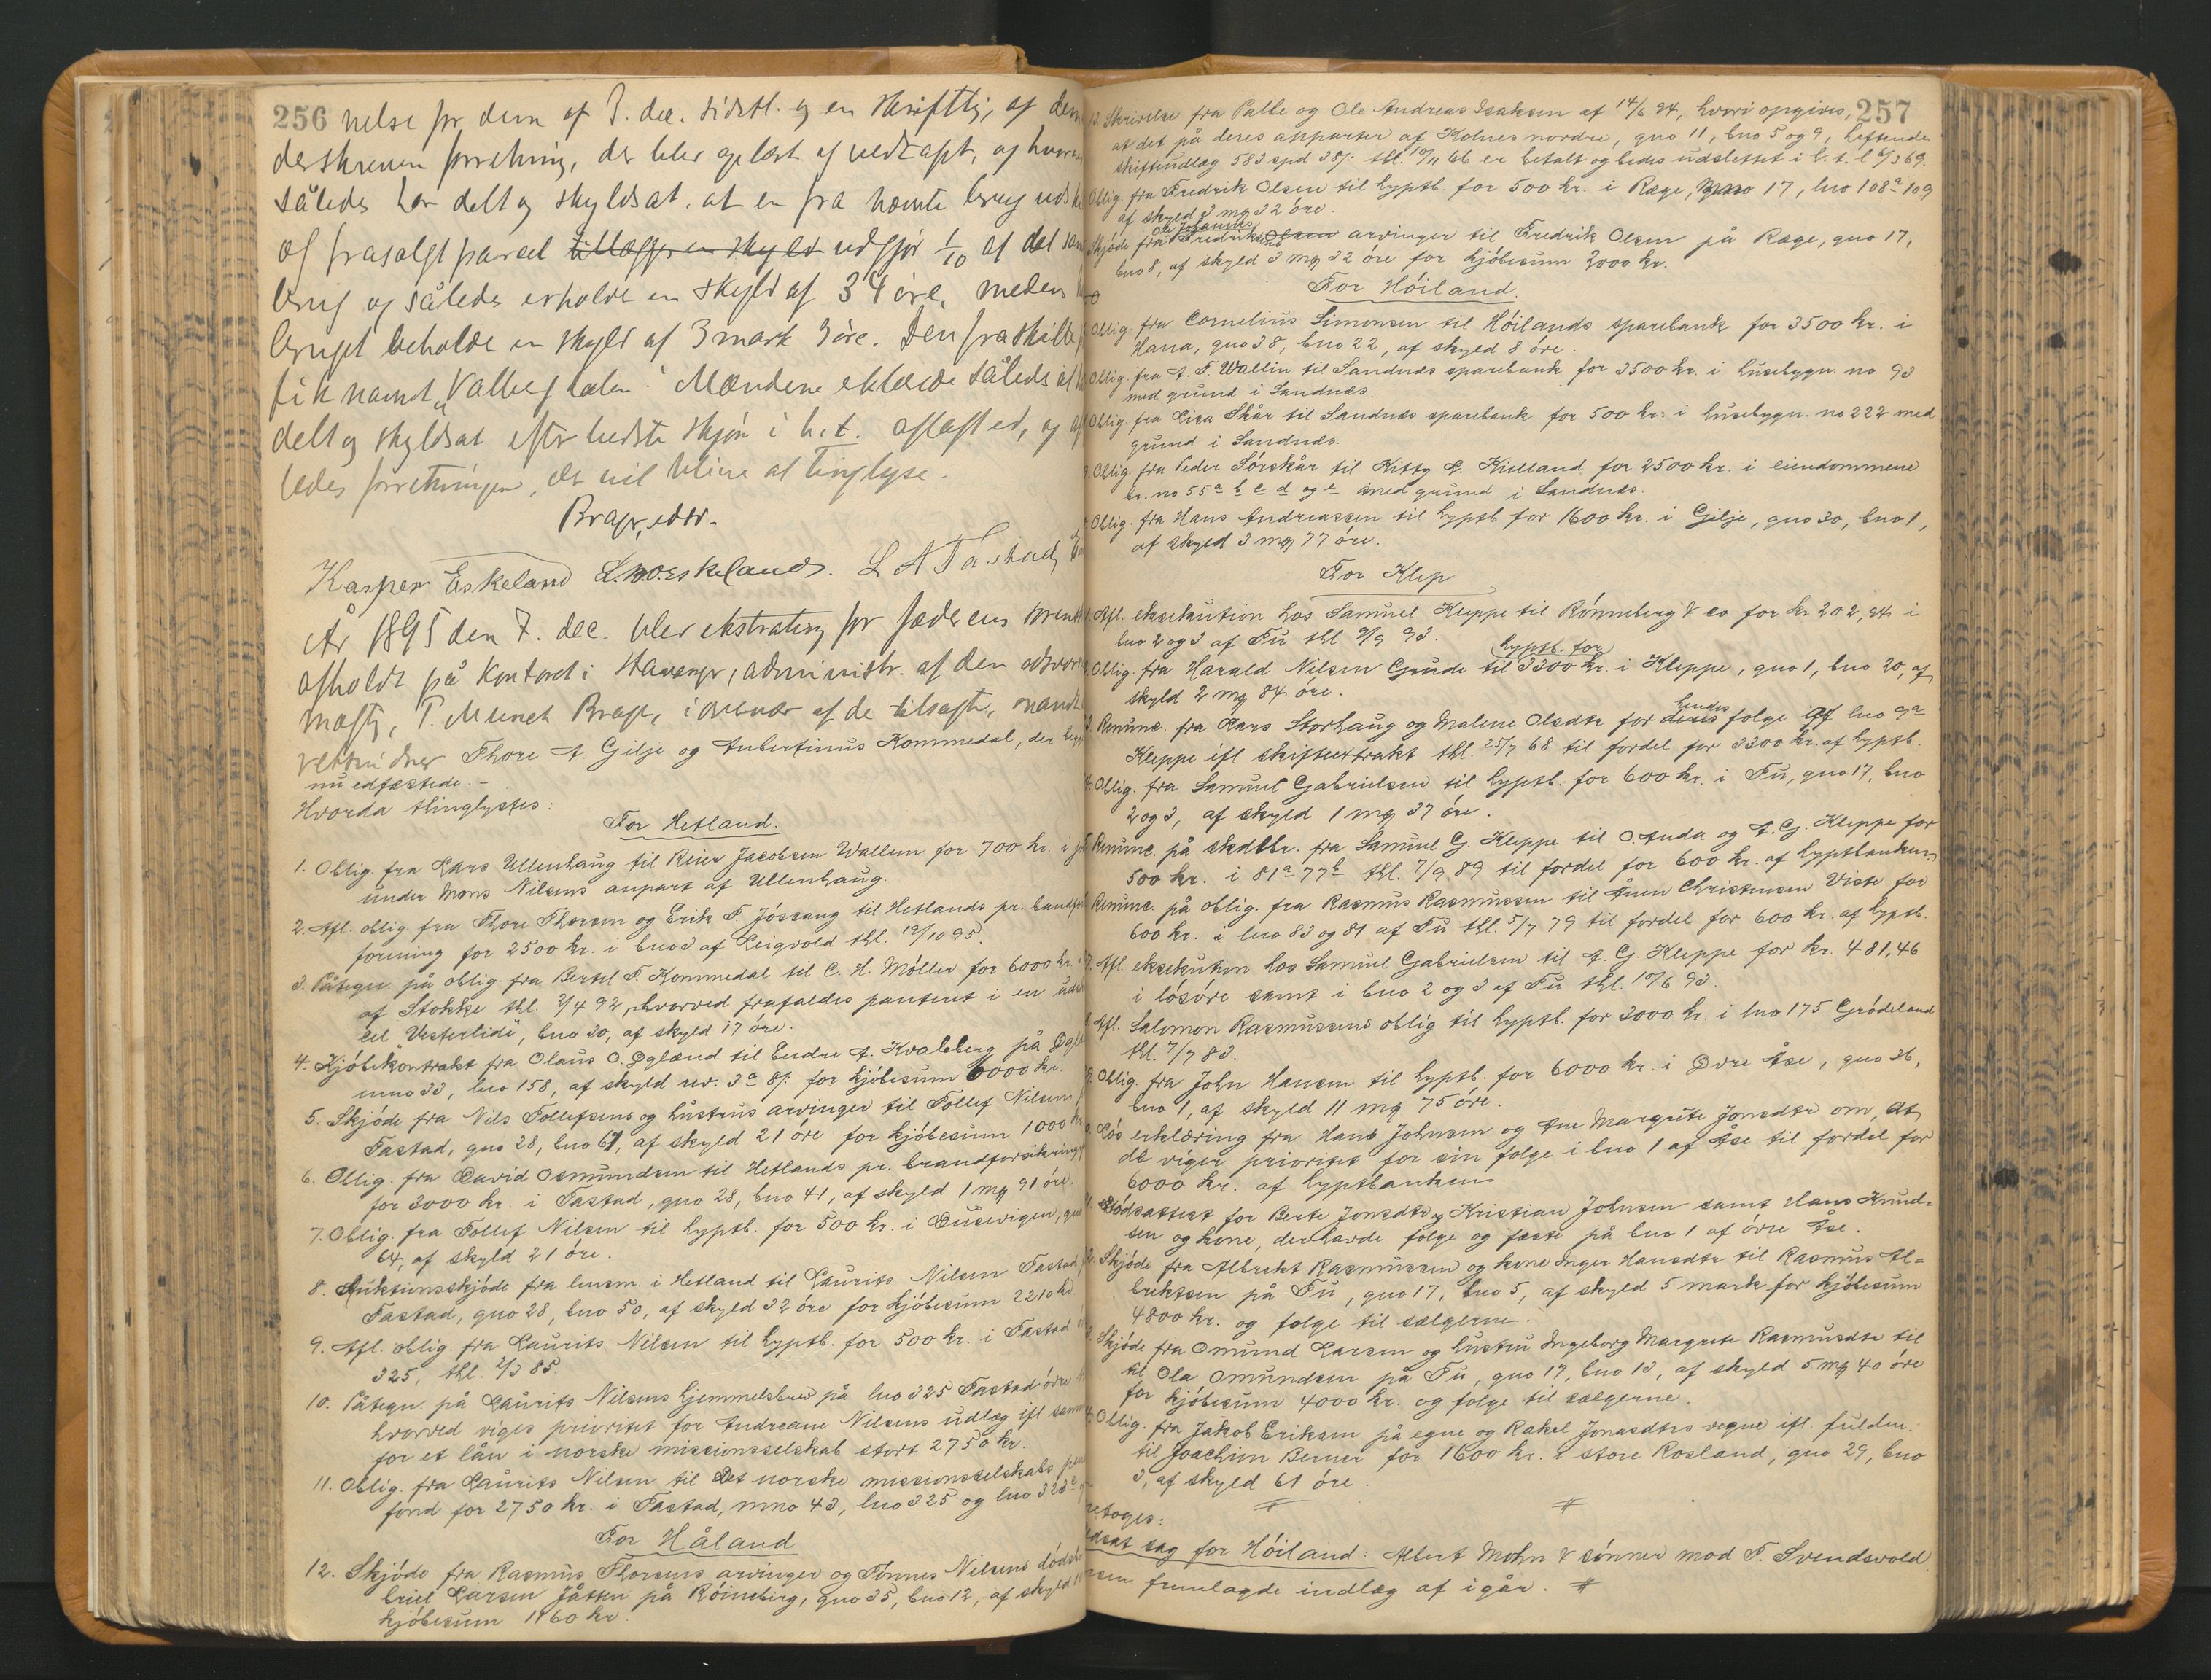 256 nelse for dem af 3. dec. sidstl. og en skriftlig, af dem
derskreven forretning, der blev oplæst og vedtaget, og hvor
således har delt og skyldsat, at en fra nævnte brug uds
af frasolgt parsel tillægges en skyld udgjør 1/10 af det
brug og således erholde en skyld af 34 øre, medens
bruget beholde en skyld af 3 mark 3 øre. Den fraskilte
fik navnet "Valbergdalen". Mændene erklærede således at
delt og skyldsat efter bedste skjøn i h. t. aflagt ed, og
ledes forretningen, der vil blive at tinglyse.
Brage, edsv.
Kasper Eskeland L. M. O. Eskeland. L A Tastad
År 1895 den 7. dec. blev ekstrating for Jæderens
afholdt på kontoret i Stavanger, administr. af den edsvorne
mægtig, T. Munch Brage, i overvær af de tilsagte, nævnte
rettsvidner Thore A. Gilje og Aubertinus Kommedal, der
nu edfæstede. –
Hvorda thinglystes:
For Hetland.
1. Oblig. fra Lars Ullenhaug til Reier Jacobsen Wallem for 700 kr. i
under Mons Nilsens anpart af Ullenhaug.
2. Afl. oblig. fra Thore Thorsen og Erik T. Jössang til Hetlands pr.
forening for 2500 kr. i bno 3 af Leigvold thl. 12/10 95.
3. Påtegn. på oblig. fra Bertel T. Kommedal til C. H. Möller for 6000 kr.
af Stokke thl. 2/4 92, hvorved frafaldes panteret i en
cel "Vesterlidi", bno 30, af skyld 17 öre.
4. Kjöbekontrakt fra Olaus O. Ogland til Endre A. Kvaleberg på
mno 33, lno 158, af skyld rev. 3ª 8ß for kjöbesum 6000 kr.
5. Skjöde fra Nils Tollefsens og hustrus arvinger til Tollef Nilsen
Tastad, gno 28, bno 67, af skyld 21 öre for kjöbesum 1000
6. Oblig. fra David Osmundsen til Hetlands pr. brandforsikring
for 3000 kr. i Tastad, gno 28, bno 41, af skyld 1 mg 91 öre.
7. Oblig. fra Tollef Nilsen til hyptb. for 500 kr. i Dusevigen,
64, af skyld 21 öre.
8. Auktionsskjöde fra lensm. i Hetland til Laurits Nilsen Tastad
Tastad, gno 28, bno 50, af skyld 32 öre for kjöbesum 2210 kr
9. Afl. oblig. fra Laurits Nilsen til hyptb. for 500 kr. i Tastad
325, thl. 2/3 85.
10. Påtegn. på Laurits Nilsens hjemmelsbrev på lno 325 Tastad övre
hvorved viges prioritet for Andreane Nilsens udlæg ifl
for et lån i norske missionsselskab stort 2750 kr.
11. Oblig. fra Laurits Nilsen til Det norske missionsselskabs
fond for 2750 kr. i Tastad, mno 43, lno 325 og lno 323
For Håland
12. Skjöde fra Rasmus Thorsens arvinger og Tönnes Nilsens dödsbo
briel Larsen Jåtten på Röineberg, gno 35, bno 12, af skyld
kjöbesum 1160 kr.
257
13. Skrivelse fra Palle og Ole Andreas Isaksen af 14/6 94, hvori opgives,
at det på deres apparter af Kolnes nordre, gno 11, bno 5 og 9, heftende
skifteudlæg 583 spd 38ß thl. 10/11 66 er betalt og bedes udslettet i h. t. l 6/3 69.
Oblig. fra Fredrik Olsen til hyptb. for 500 kr. i Ræge, mno 17, lno 108ª 109
af skyld 3 mg 32 öre.
Ole Johannes
Skjöde fra Fredriksens Olsen arvinger til Fredrik Olsen på Ræge, gno 17,
bno 8, af skyld 3 mg 32 öre for kjöbesum 2000 kr.
For Höiland.
Oblig. fra Cornelius Simonsen til Höilands sparebank for 3500 kr. i
Hana, gno 38, bno 22, af skyld 8 öre.
Oblig. fra A. T. Wallin til Sandnæs sparebank for 3500 kr. i husebygn. no 93
med grund i Sandnæs.
Oblig. fra Lisa Skår til Sandnæs sparebank for 500 kr. i husebygn. no 222 med
grund i Sandnæs.
Oblig. fra Peder Sörskår til Kitty G. Kielland for 2500 kr. i eiendommene
br. no 55 a b c d og e med grund i Sandnæs.
Oblig. fra Hans Andreassen til hyptb for 1600 kr. i Gilje, gno 30, bno 1,
af skyld 3 mg 77 öre.
For Klep
1. Afl. eksekution hos Samuel Kleppe til Rönneberg & co for kr 202,94 i
bno 2 og 3 af Tu thl 9/9 93.
hyptb. for
Oblig. fra Harald Nilsen Grude til 3300 kr. i Kleppe, gno 1, bno 20, af
skyld 2 mg 84 öre.
hendes
3. Renunc. fra Lars Storhaug og Malene Olsdtr for deres folge af lno 9ª
Kleppe ifl skifteextrakt thl. 25/7 68 til fordel for 3300 kr. af hyptb.
4. Oblig. fra Samuel Gabrielsen til hyptb. for 600 kr. i Tu, gno 17, bno
2 og 3, af skyld 1 mg 37 öre.
Renunc. på skdbr. fra Samuel G. Kleppe til O. Auda og A. G. Kleppe for
500 kr. i 81ª 77b thl. 7/9 89 til fordel for 600 kr. af hyptbanken
Renunc. på oblig. fra Rasmus Rasmussen til Anen Christensen Viste for
600 kr. i lno 83 og 81 af Tu thl. 5/7 79 til fordel for 600 kr. af hyptb.
7. Afl. eksekution hos Samuel Gabrielsen til A. G. Kleppe for kr. 481,46
i lösöre samt i bno 2 og 3 af Tu thl. 10/6 93.
8. Afl. Salomon Rasmussens oblig til hyptb. for 3000 kr. i lno 175 Grödeland
thl. 7/7 83.
9. Oblig. fra John Hansen til hyptb. for 6000 kr. i Övre Åse, gno 36,
bno 1, af skyld 11 mg 75 öre.
Lös erklæring fra Hans Johnsen og Ane Margrete Jonsdtr om, at
de viger prioritet for sin folge i bno 1 af Åse til fordel for
6000 kr. af hyptbanken.
Dödsattest for Berte Jonsdtr og Kristian Johnsen samt Hans Knud-
sen og kone, der havde folge og fæste på bno 1 af övre Åse.
2. Skjöde fra Albrekt Rasmussen og kone Inger Hansdtr til Rasmus Al-
briktsen på Tu, gno 17, bno 5, af skyld 5 mark for kjöbesum
4800 kr. og folge til sælgerne.
3. Skjöde fra Omund Larsen og hustru Ingeborg Margrete Rasmusdtr til
til Ola Omundsen på Tu, gno 17, bno 13, af skyld 5 mg 40 öre
for kjöbesum 4000 kr. og folge til sælgerne.
4. Oblig. fra Jakob Eriksen på egne og Rakel Jonasdtrs vegne ifl. fuldm.
til Joachim Berner for 1600 kr. i store Rosland, gno 29, bno
3, af skyld 61 öre.
etoges:
dsat sag for Höiland: Albert Mohn & sönner mod T. Svendsvold.
sen fremlagde indlæg af igår.